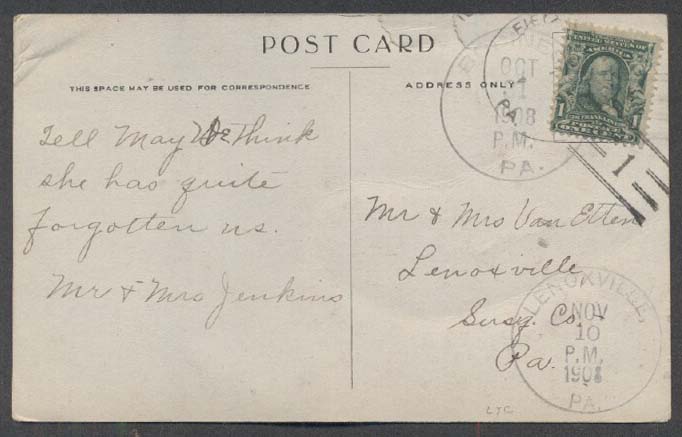 POST CARD
THIS SPACE MAY BE USED FOR CORRESPONDENCE
ADDRESS ONLY
Tell May We Think
she has quite
forgotten us.
Mr & Mrs Jenkins
OCT
1908
P.M.
PA.
1
Mr & Mrs Van Etten
Lenoxville
Susq. Co -
Pa.
LENOXVILLE,
NOV
10
P.M.
1908
PA.
UNITED STATES OF
AMERICA
1 1
FRANKLIN
POSTAGE
ONE CENT
LYC